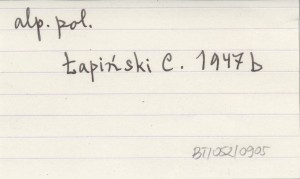 alp. pol.
Łapiński C. 1947b
BT/052/0905